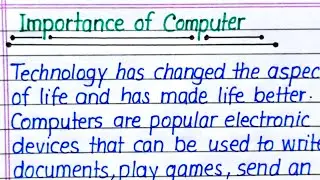 Importance of Computer
Technology has changed the aspec
of life and has made life better.
Computers are popular electronic
devices that can be used to write
documents, play games, send an